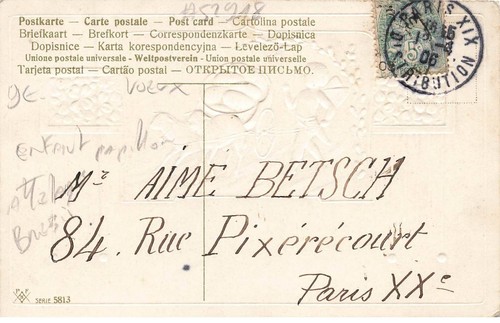 A52918
Postkarte – Carte postale – Post card – Cartolina postale
Briefkaart – Brefkort – Correspondenzkarte – Dopisnica
Dopisnice – Karta korespondencyjna – Levelező-Lap
Unione postale universale – Weltpostverein – Union postale universelle
Tarjeta postal – Cartão postal – ОТКРЫТОЕ ПИСЬМО.
PARIS XIX
DISTRIBUTION
06
9E
VOEUX
enfant papillon
Mr AIMÉ BETSCH
84. Rue Pixérécourt
Paris XXe
SERIE 5813